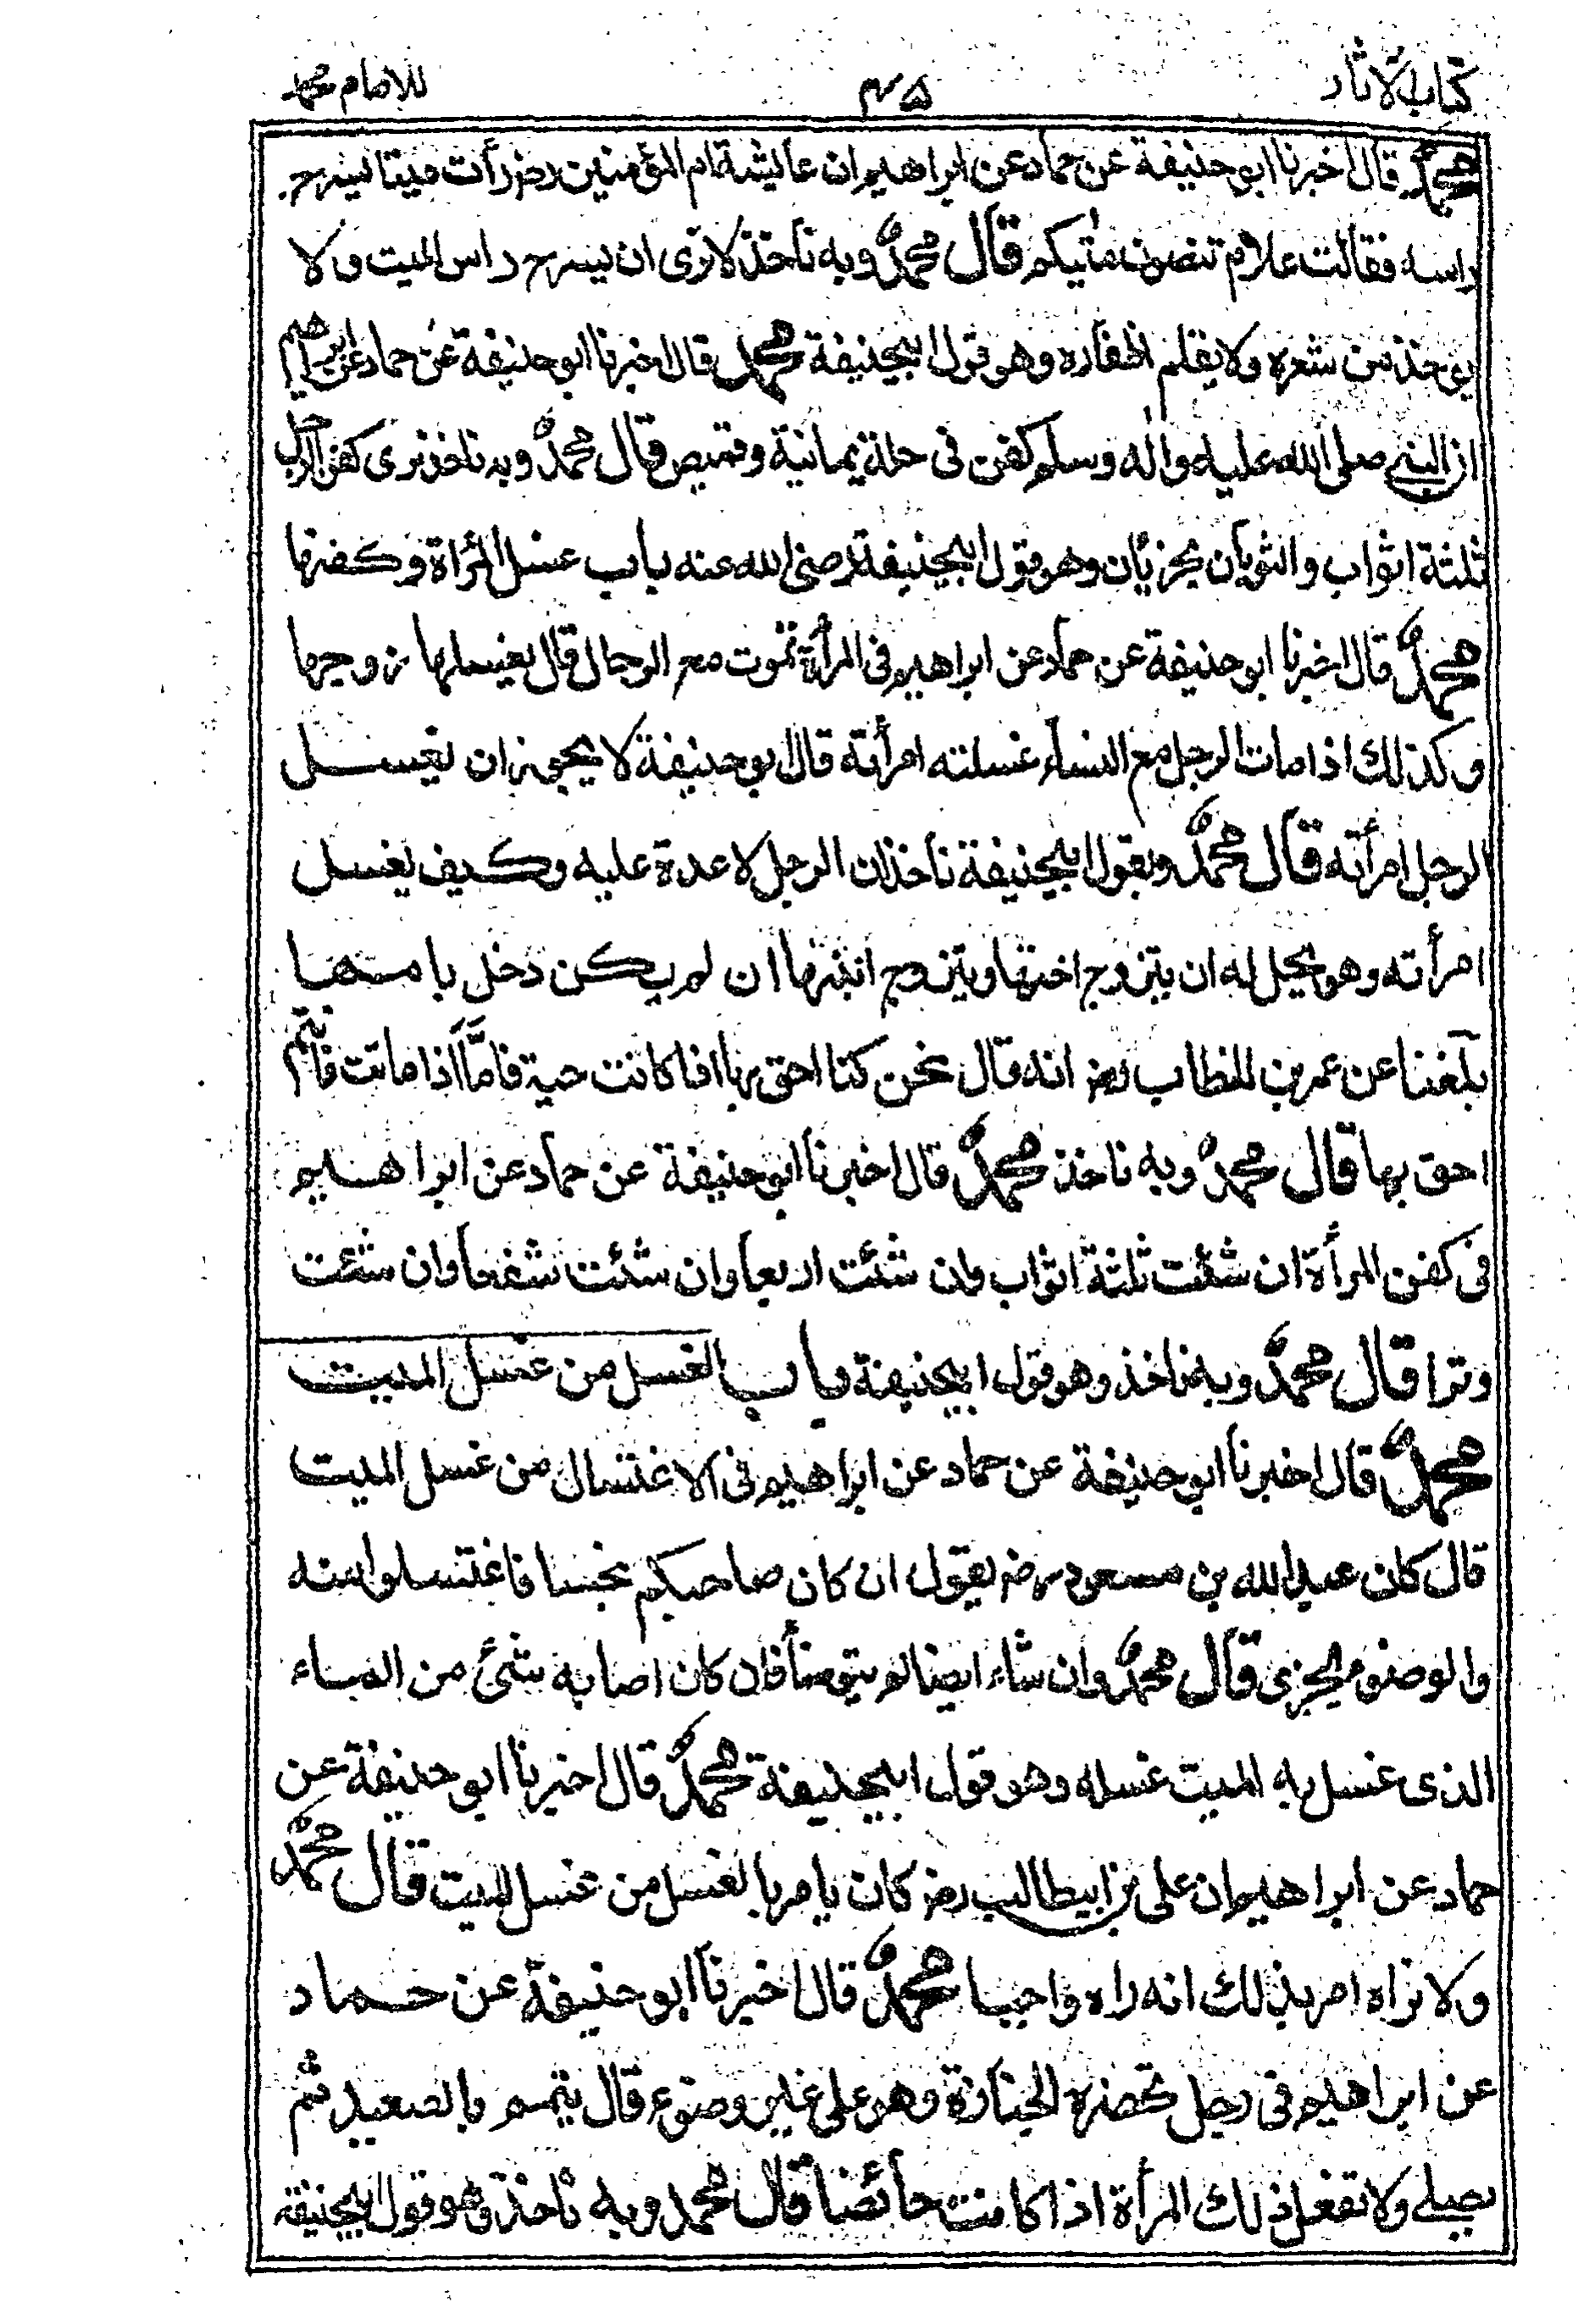 كتاب الاثار
٤٥
للامام محمد
محمد قال اخبرنا ابو حنيفة عن حماد عن ابراهيم ان عائشة ام المؤمنين رضـ رأت ميتا يسرح
راسه فقالت علام تنصون ميتكم قال محمد وبه ناخذ لا نرى ان يسرح راس الميت ولا
يوخذ من شعره ولا يقلم اظفاره وهو قول ابيحنيفة محمد قال اخبرنا ابو حنيفة عن حماد عن ابراهيم
ان النبي صلى الله عليه واله وسلم كفن في حلة يمانية وقميص قال محمد وبه ناخذ نرى كفن الرجل
ثلثة اثواب والثوبان يجزيان وهو قول ابيحنيفة رضي الله عنه باب غسل المرأة وكفنها
محمد قال اخبرنا ابو حنيفة عن حماد عن ابراهيم في المرأة تموت مع الرجال قال يغسلها زوجها
وكذلك اذا مات الرجل مع النساء غسلته امرأته قال ابو حنيفة لا يجوز ان يغسل
الرجل امرأته قال محمد وبقول ابيحنيفة ناخذ ان الرجل لا عدة عليه وكيف يغسل
امرأته وهو يحل له ان يتزوج اختها ويتزوج ابنتها ان لم يكن دخل بامها
بلغنا عن عمر بن الخطاب رضـ انه قال نحن كنا احق بها اذا كانت حية فاما اذا ماتت فانتم
احق بها قال محمد وبه ناخذ محمد قال اخبرنا ابو حنيفة عن حماد عن ابراهيم
في كفن المرأة ان شئت ثلثة اثواب وان شئت اربعا وان شئت شفعا وان شئت
وترا قال محمد وبه ناخذ وهو قول ابيحنيفة باب الغسل من غسل الميت
محمد قال اخبرنا ابو حنيفة عن حماد عن ابراهيم في الاغتسال من غسل الميت
قال كان عبد الله بن مسعود رضـ يقول ان كان صاحبكم نجسا فاغتسلوا منه
والوضوء يجزى قال محمد وان شاء ايضا لم يتوضأ فان كان اصابه شئ من الماء
الذى غسل به الميت غسله وهو قول ابيحنيفة محمد قال اخبرنا ابو حنيفة عن
حماد عن ابراهيم ان على بن ابيطالب رضـ كان يامر بالغسل من غسل الميت قال محمد
ولا نراه امر بذلك انه راه واجبا محمد قال اخبرنا ابو حنيفة عن حماد
عن ابراهيم في رجل تحضره الجنازة وهو على غير وضوء قال يتيمم بالصعيد ثم
يصلي ولا تفعل ذلك المرأة اذا كانت حائضا قال محمد وبه ناخذ وهو قول ابيحنيفة